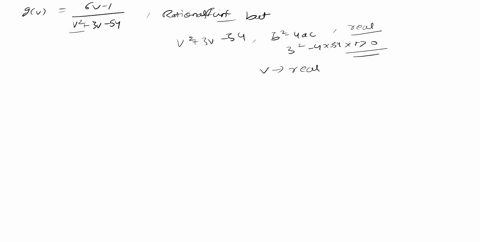 g(v) = 6v-1 / v²+3v-54 , Rational funt but
v²+3v-54 , b²-4ac , real
3²-4×54×1>0
v → real